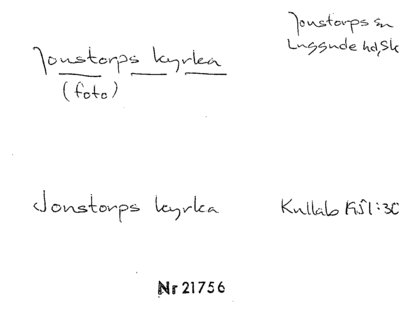 Jonstorps kyrka
(foto)
Jonstorps sn
Luggude hd, Sk
Jonstorps kyrka
Kullab 1951:30
Nr 21756